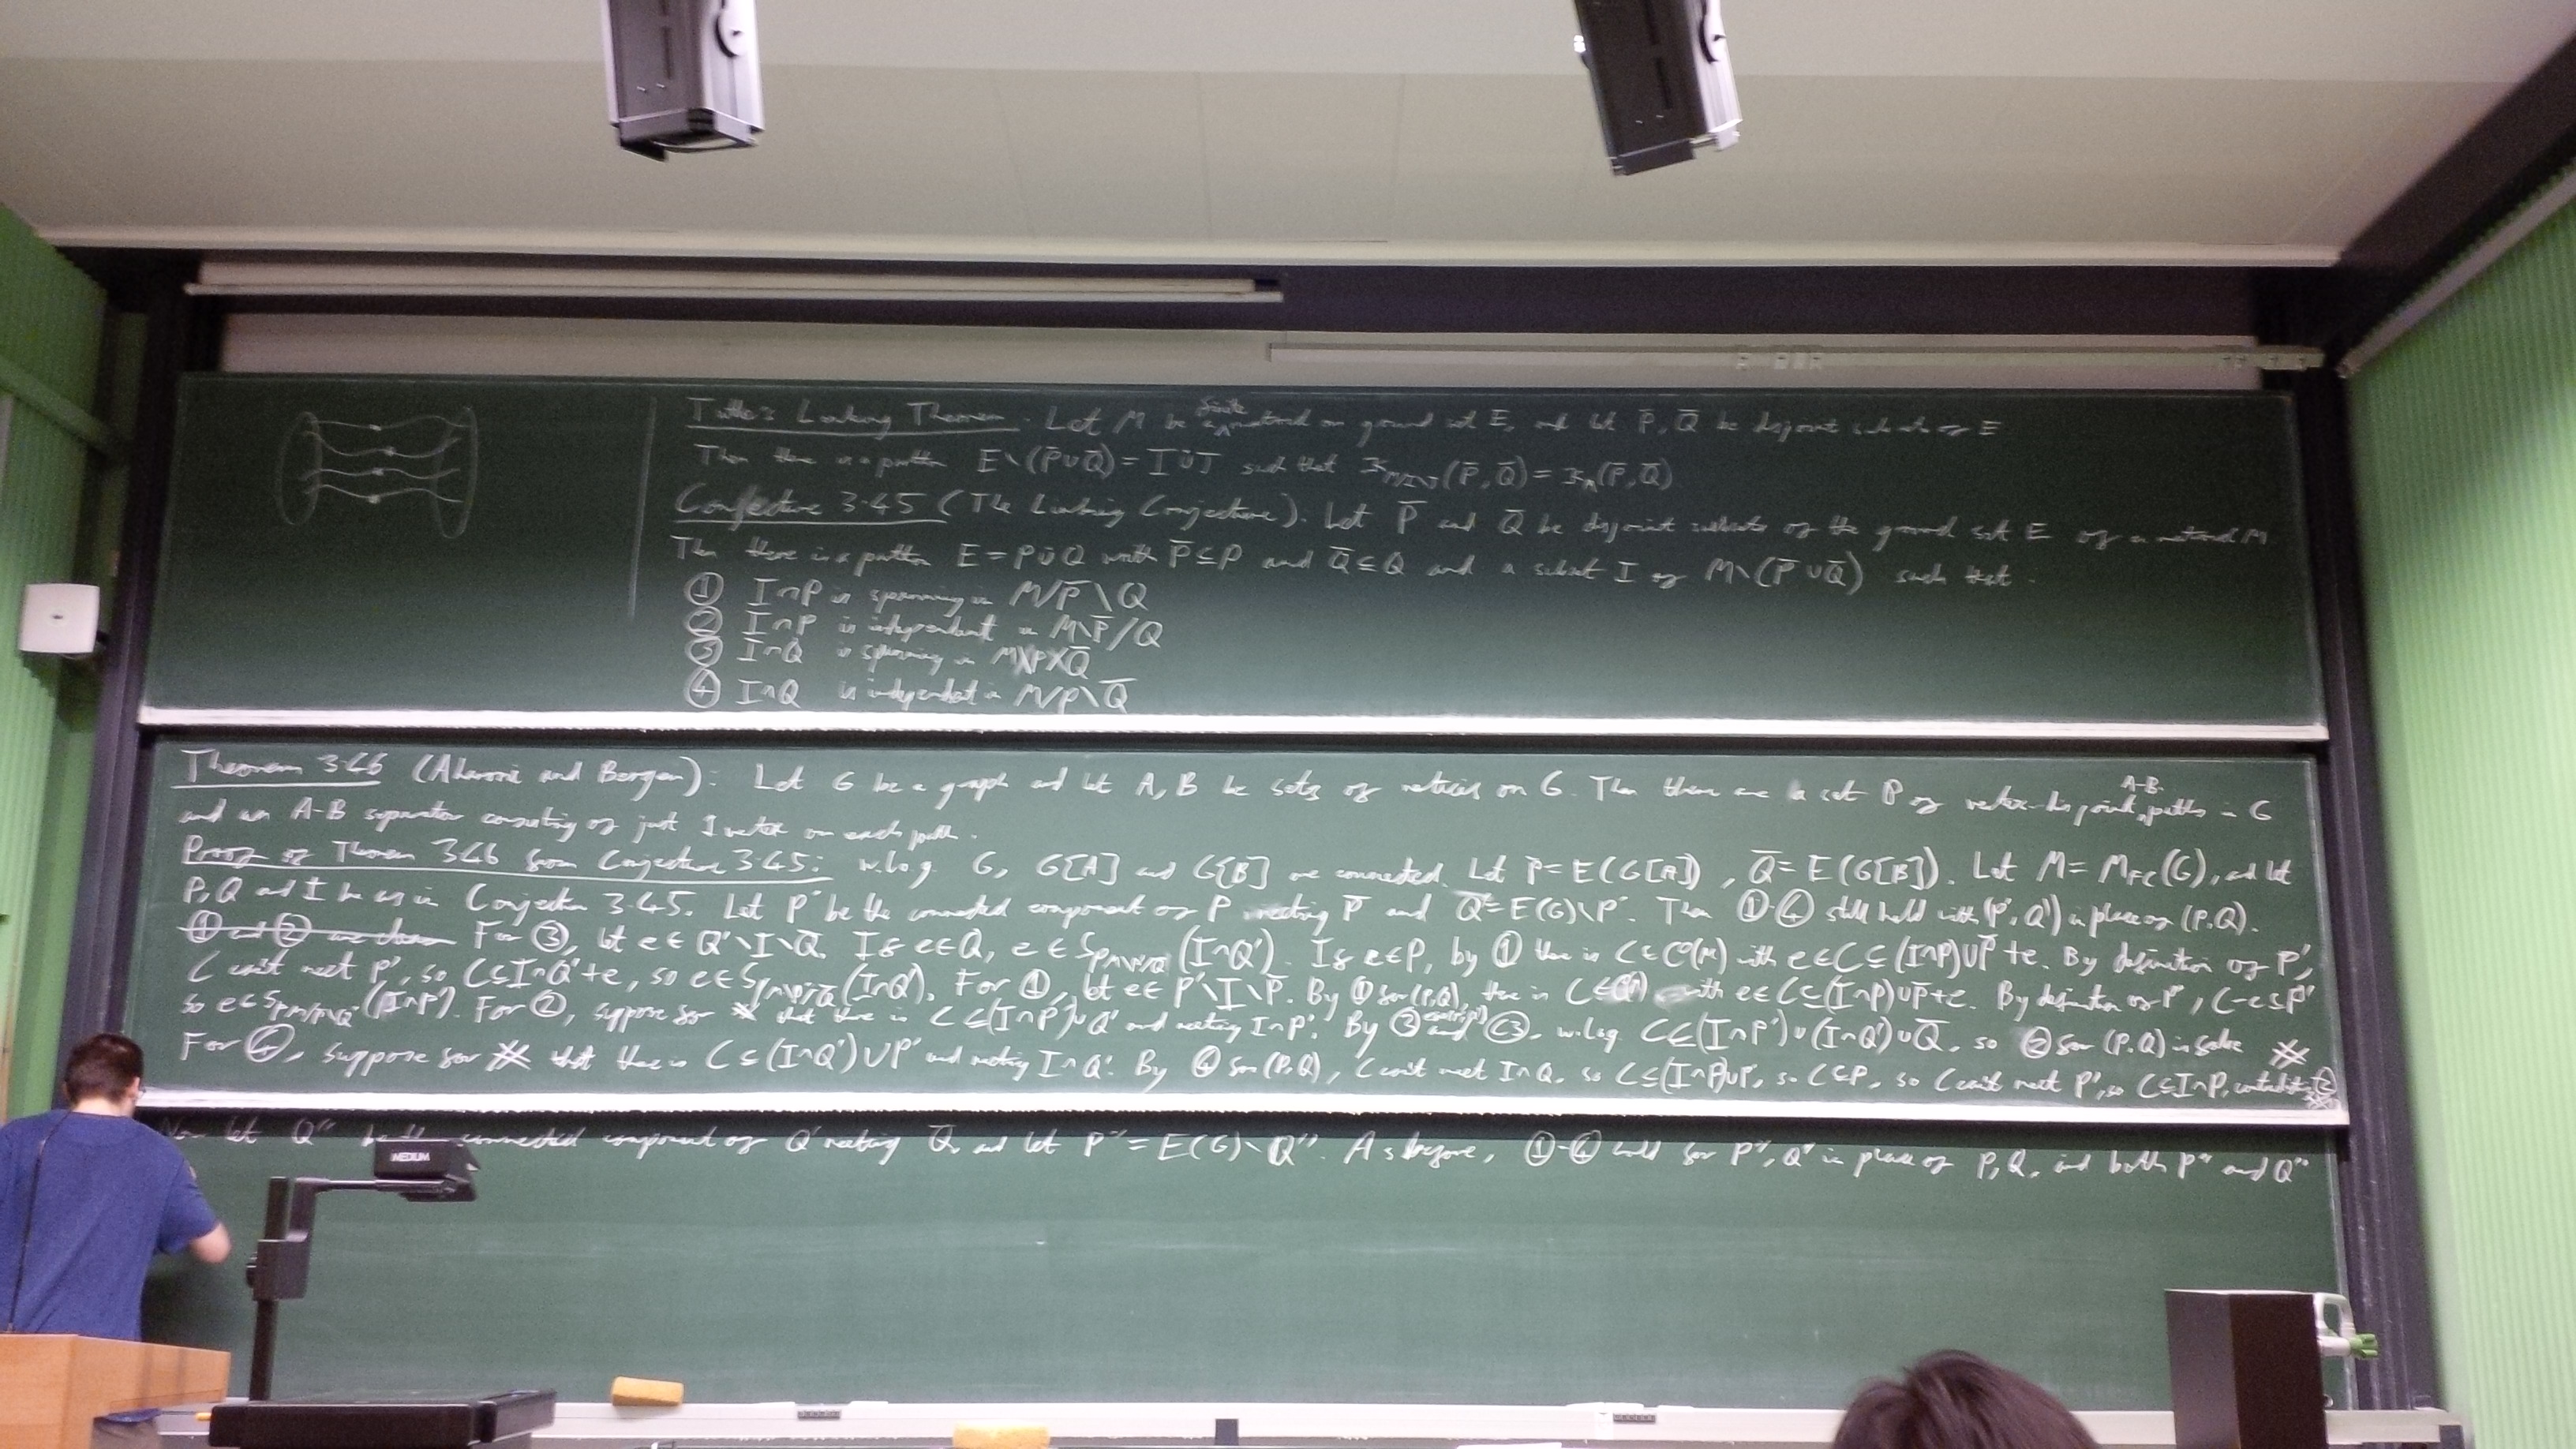 Tutte's Linking Theorem. Let M be a finite matroid on ground set E, and let P̄, Q̄ be disjoint subsets of E
Then there is a partition E∖(P̄∪Q̄) = I ∪̇ J such that κ_{M/I∖J}(P̄,Q̄) = κ_M(P̄,Q̄)
Conjecture 3.45 (The Linking Conjecture). Let P̄ and Q̄ be disjoint subsets of the ground set E of a matroid M
Then there is a partition E = P ∪̇ Q with P̄⊆P and Q̄⊆Q and a subset I of M∖(P̄∪Q̄) such that.
① I∩P is spanning in M/P̄∖Q
② I∩P is independent in M∖P̄/Q
③ I∩Q is spanning in Q̄
④ I∩Q is independent in M/P∖Q̄
Theorem 3.46 (Aharoni and Berger): Let G be a graph and let A, B be sets of vertices on G. Then there are a set P of vertex-disjoint A-B paths in G
and an A-B separator consisting of just 1 vertex on each path.
Proof of Theorem 3.46 from Conjecture 3.45: w.l.o.g. G, G[A] and G[B] are connected. Let P̄=E(G[A]), Q̄=E(G[B]). Let M=M_FC(G), and let
P,Q and I be as in Conjecture 3.45. Let P' be the connected component of P meeting P̄ and Q'=E(G)∖P'. Then ①-④ still hold with (P',Q') in place of (P,Q).
For ③, let e∈Q'∖I∖Q̄. If e∈Q, e∈Sp (I∩Q'). If e∈P, by ① there is C∈C(M) with e∈C⊆(I∩P)∪P̄+e. By definition of P',
C can't meet P', so C⊆I∩Q'+e, so e∈Sp (I∩Q'). For ①, let e∈P'∖I∖P̄. By ① for (P,Q), there is C with e∈C⊆(I∩P)∪P̄+e. By definition of P', C-e⊆P'
so e∈Sp (I∩P'). For ②, suppose for ※ that there is C⊆(I∩P')∪Q' and meeting I∩P'. By ③ and (C3), w.l.o.g. C⊆(I∩P')∪(I∩Q')∪Q̄, so ② for (P,Q) is false ※
For ④, suppose for ※ that there is C⊆(I∩Q')∪P' and meeting I∩Q'. By ④ for (P,Q), C can't meet I∩Q, so C⊆(I∩P)∪P', so C⊆P, so C can't meet P', so C⊆I∩P, ② ※
Now let Q'' be the connected component of Q' meeting Q̄, and let P''=E(G)∖Q''. As before, ①-④ hold for P'', Q'' in place of P, Q, and both P'' and Q''
MEDIUM